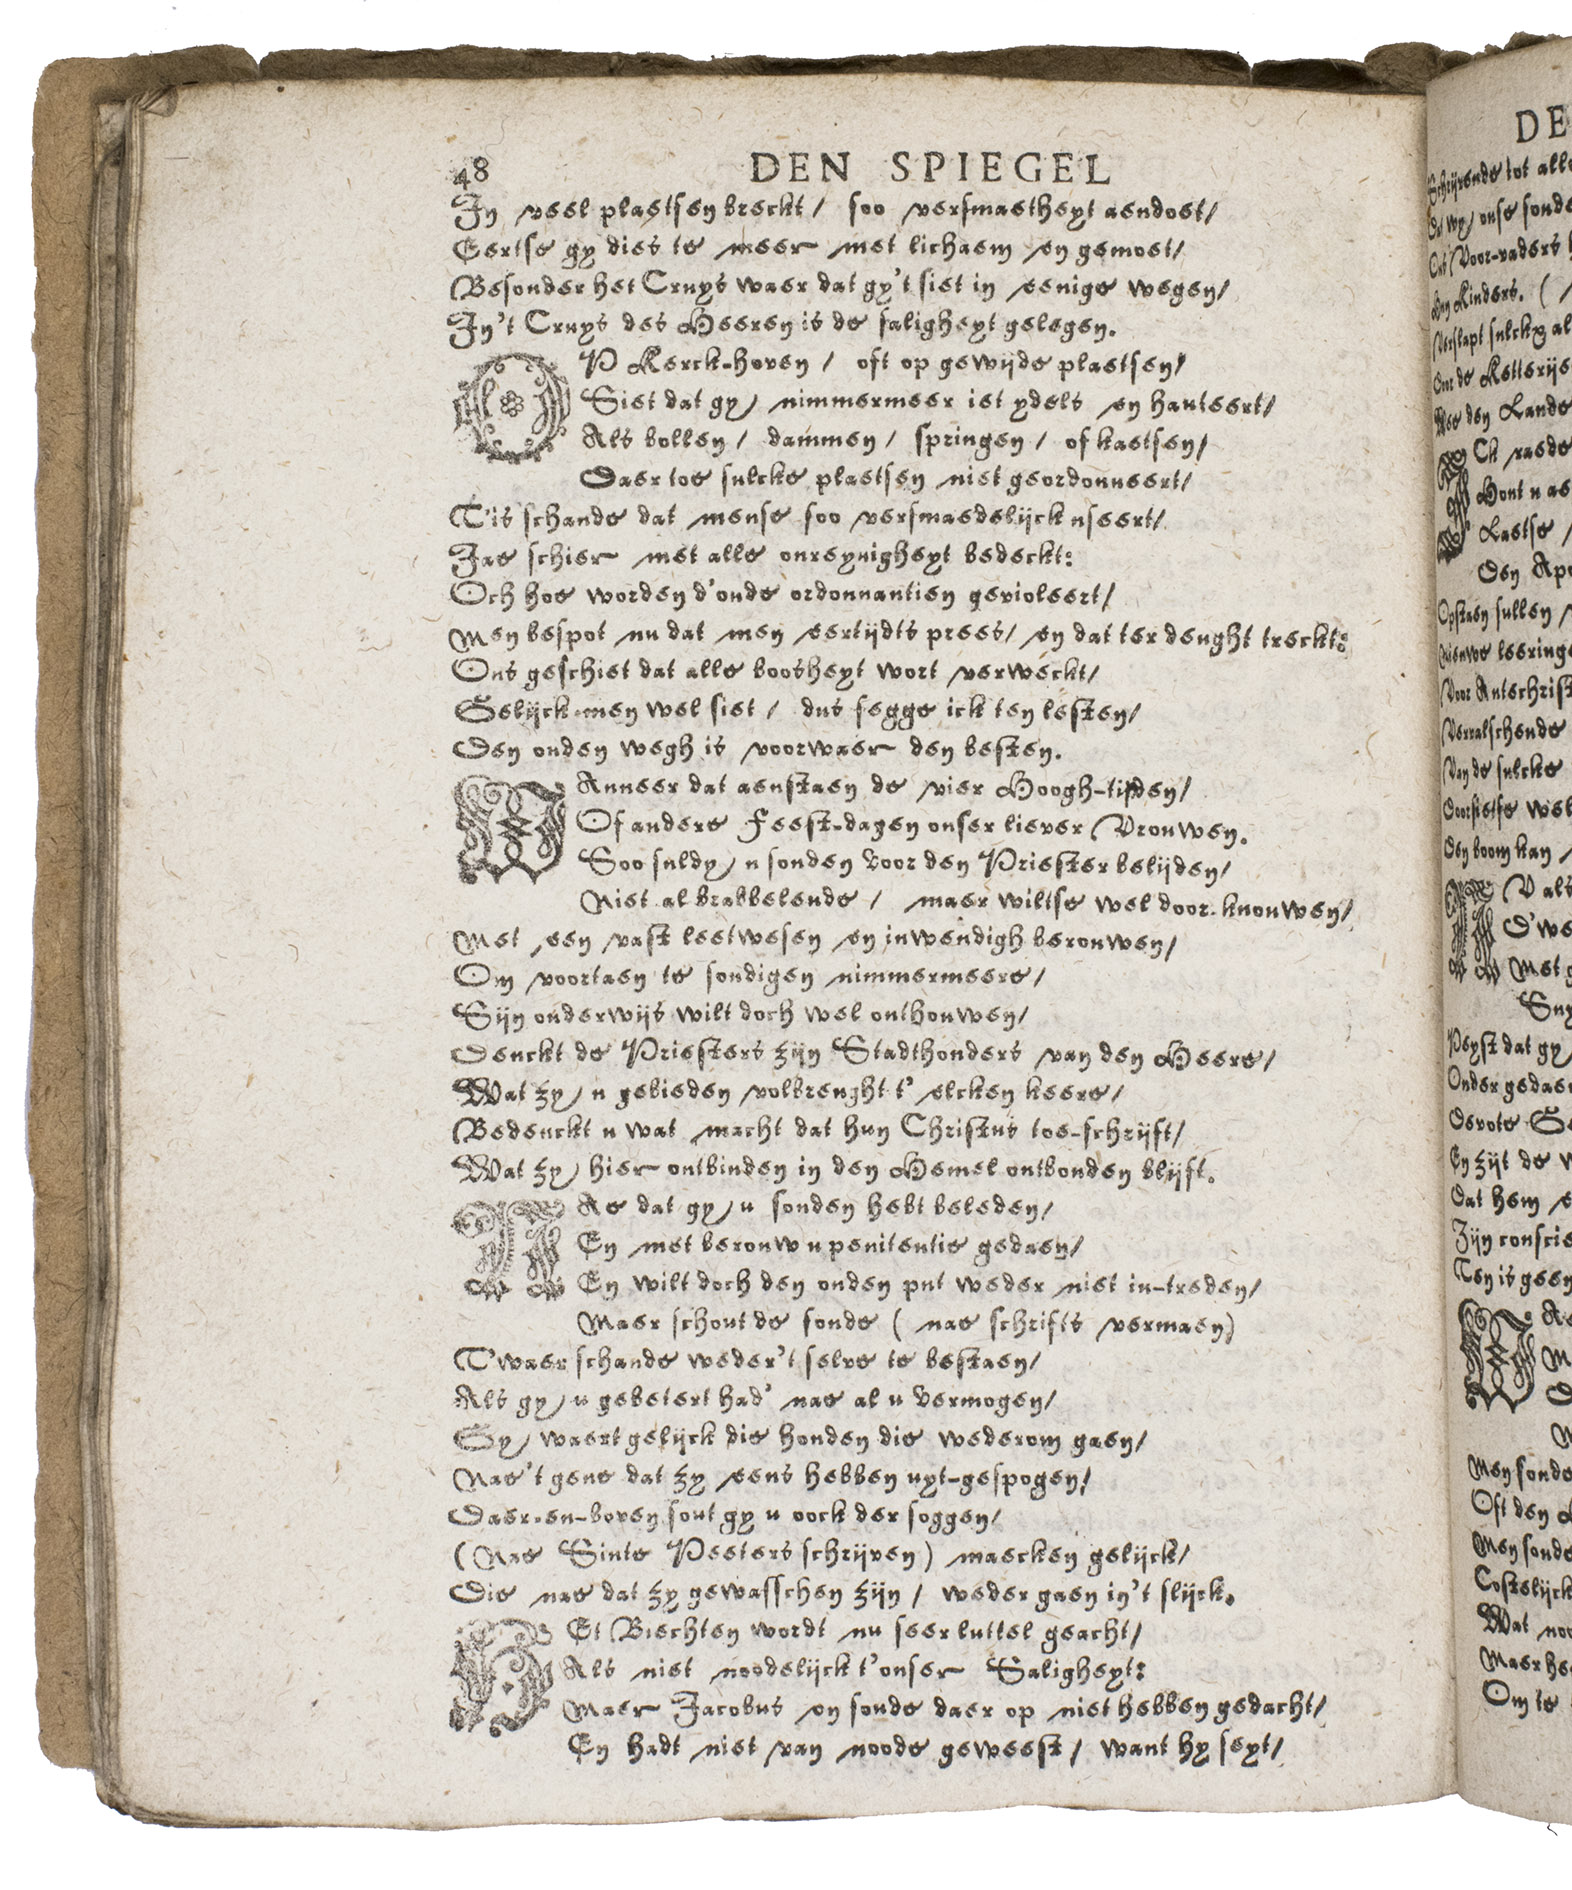 48 DEN SPIEGEL
In veel plaetsen breckt / soo versmaetheyt aendoet /
Eertse gy dies te meer met lichaem en gemoet /
Besonder het Cruys waer dat gy't siet in eenige wegen /
In't Cruys des Heeren is de saligheyt gelegen.
OP Kerck-hoven / oft op gewijde plaetsen /
Siet dat gy nimmermeer iet ydels en hanteert /
Als bollen / dammen / springen / of kaetsen /
Daer toe sulcke plaetsen niet geordonneert /
T'is schande dat mense soo versmaedelijck useert /
Jae schier met alle onreynigheyt bedeckt:
Och hoe worden d'oude ordonnantien gevioleert /
Men bespot nu dat men eertijdts prees / en dat ter deught treckt:
Ons geschiet dat alle boosheyt wort verweckt /
Gelijck men wel siet / dus segge ick ten lesten /
Den ouden wegh is voorwaer den besten.
WAnneer dat aenstaen de vier Hoogh-tijden /
Of andere Feest-dagen onser liever Vrouwen.
Soo suldy u sonden voor den Priester belijden /
Niet al brabbelende / maer wiltse wel door-knouwen /
Met een vast leetwesen en inwendigh berouwen /
Om voortaen te sondigen nimmermeere /
Sijn onderwijs wilt doch wel onthouwen /
Denckt de Priesters zijn Stadthouders van den Heere /
Wat zy u gebieden volbrenght t'elcken keere /
Bedenckt u wat macht dat hun Christus toe-schrijft /
Wat zy hier ontbinden in den Hemel ontbonden blijft.
NAe dat gy u sonden hebt beleden /
En met berouw u penitentie gedaen /
En wilt doch den ouden put weder niet in-treden /
Maer schout de sonde ( nae schrifts vermaen )
T'waer schande weder't selve te bestaen /
Als gy u gebetert had' nae al u vermogen /
Gy waert gelijck die honden die wederom gaen /
Nae't gene dat zy eens hebben uyt-gespogen /
Daer-en-boven sout gy u oock der soggen /
( Nae Sinte Peeters schrijven ) maecken gelijck /
Die nae dat zy gewasschen zijn / weder gaen in't slijck.
HEt Biechten wordt nu seer luttel geacht /
Als niet noodelijck t'onser Saligheyt:
Maer Jacobus en soude daer op niet hebben gedacht /
En hadt niet van noode geweest / want hy seyt /